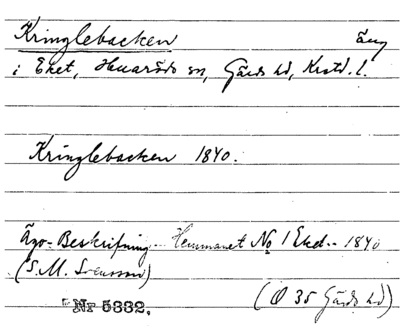 Kringlebacken äng
i Eket, Huaröds sn, Gärds hd, Krstd. l.
Kringlebacken 1840.
Ägo-Beskrifning Hemmanet No 1 Eket. 1840
(S. M. Svensson)
(O 35 Gärds hd)
Nr 5332.